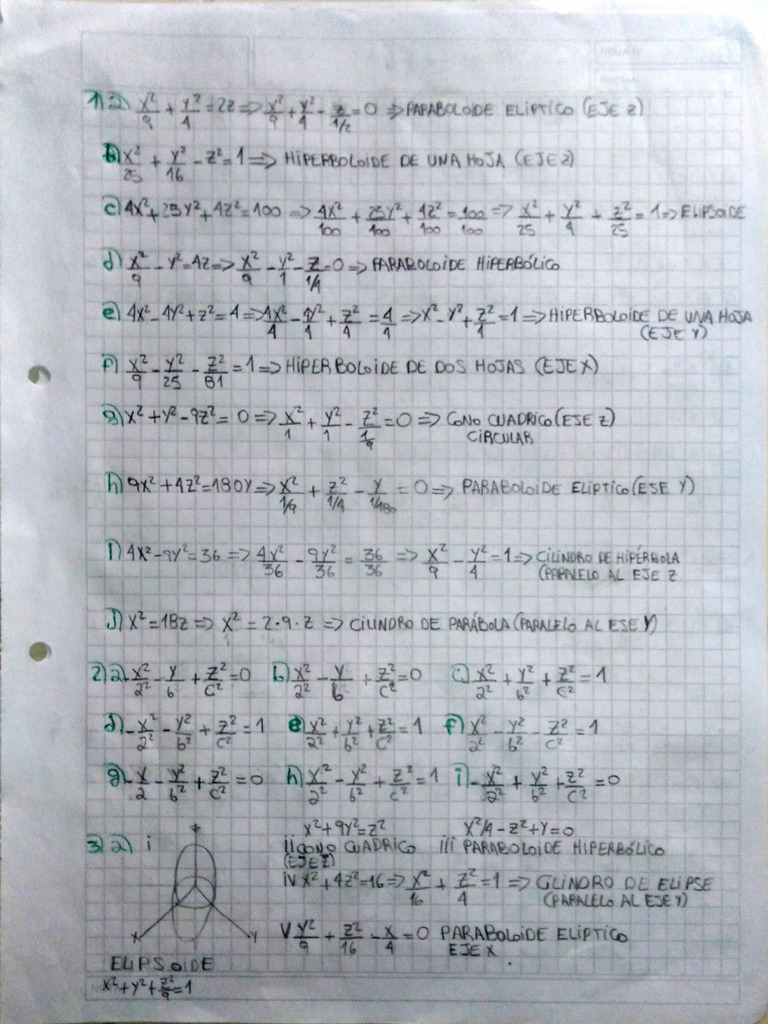 1) a) x²/9 + y²/4 = 2z => x²/9 + y²/4 - z/1/2 = 0 => PARABOLOIDE ELIPTICO (EJE Z)
b) x²/25 + y²/16 - z² = 1 => HIPERBOLOIDE DE UNA HOJA (EJE Z)
c) 4x² + 25y² + 4z² = 100 => 4x²/100 + 25y²/100 + 4z²/100 = 100/100 => x²/25 + y²/4 + z²/25 = 1 => ELIPSOIDE
d) x²/9 - y² = 4z => x²/9 - y²/1 - z/1/4 = 0 => PARABOLOIDE HIPERBÓLICO
e) 4x² - 4y² + z² = 4 => 4x²/4 - 4y²/4 + z²/4 = 4/4 => x² - y² + z²/4 = 1 => HIPERBOLOIDE DE UNA HOJA
(EJE Y)
f) x²/9 - y²/25 - z²/81 = 1 => HIPERBOLOIDE DE DOS HOJAS (EJE X)
g) x² + y² - 9z² = 0 => x²/1 + y²/1 - z²/1/9 = 0 => CONO CUADRICO (EJE Z)
CIRCULAR
h) 9x² + 4z² = 180y => x²/1/9 + z²/1/4 - y/1/180 = 0 => PARABOLOIDE ELIPTICO (ESE Y)
i) 4x² - 9y² = 36 => 4x²/36 - 9y²/36 = 36/36 => x²/9 - y²/4 = 1 => CILINDRO DE HIPÉRBOLA
(PARALELO AL EJE Z
J) x² = 18z => x² = 2·9·z => CILINDRO DE PARÁBOLA (PARALELO AL ESE Y)
2) a) -x²/2² - y/b + z²/c² = 0 b) x²/2² - y/b + z²/c² = 0 c) x²/2² + y²/b² + z²/c² = 1
d) -x²/2² - y²/b² + z²/c² = 1 e) x²/2² + y²/b² + z²/c² = 1 f) x²/2² - y²/b² - z²/c² = 1
g) -x/2 - y²/b² + z²/c² = 0 h) x²/2² - y²/b² + z²/c² = 1 i) -x²/2² + y²/b² + z²/c² = 0
x² + 9y² = z² x²/4 - z² + y = 0
3) a) i ii CONO CUADRICO iii PARABOLOIDE HIPERBÓLICO
(EJE Z)
iv x² + 4z² = 16 => x²/16 + z²/4 = 1 => CILINDRO DE ELIPSE
(PARALELO AL EJE Y)
x y
v y²/9 + z²/16 - x/4 = 0 PARABOLOIDE ELIPTICO
EJE X
ELIPSOIDE
x² + y² + z²/9 = 1